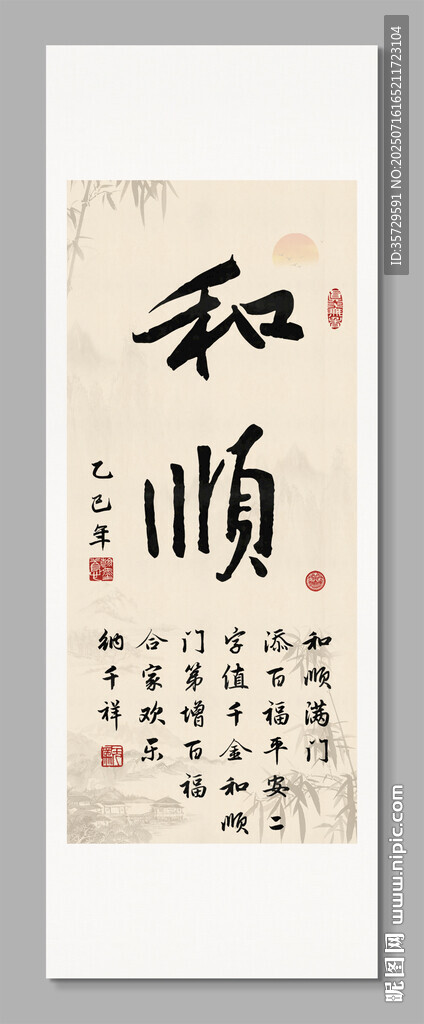 和顺
乙巳年
和顺满门
添百福平安二
字值千金和顺
门第增百福
合家欢乐
纳千祥
ID:35729591 NO:20250716165211723104
昵图网 www.nipic.com